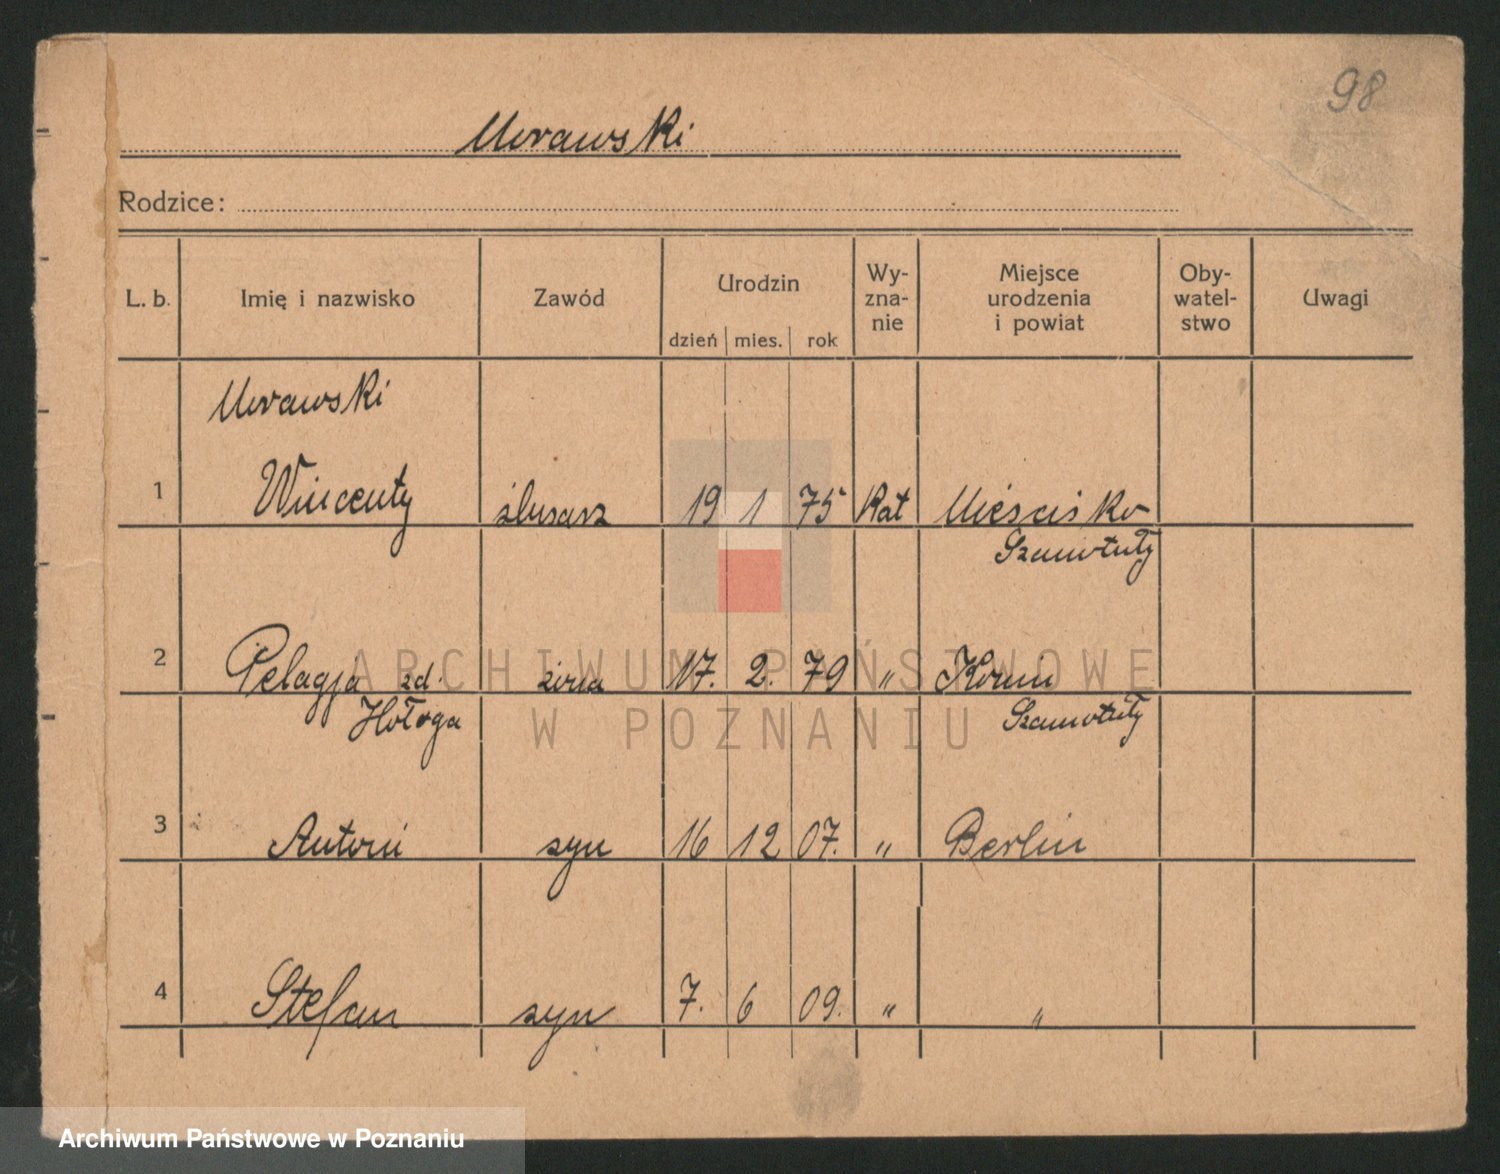 98
Morawski
Rodzice:
L. b. Imię i nazwisko Zawód Urodzin dzień mies. rok Wy-zna-nie Miejsce urodzenia i powiat Oby-watel-stwo Uwagi
Morawski
1 Wincenty ślusarz 19 1 75 Kat Mieścisko
Szamotuły
2 Pelagja zd. żona 17. 2. 79 „
Hołoga Szamotuły
3 Antoni syn 16 12 07. „ Berlin
4 Stefan syn 7. 6 09. „ „
ARCHIWUM PAŃSTWOWE
W POZNANIU
Archiwum Państwowe w Poznaniu